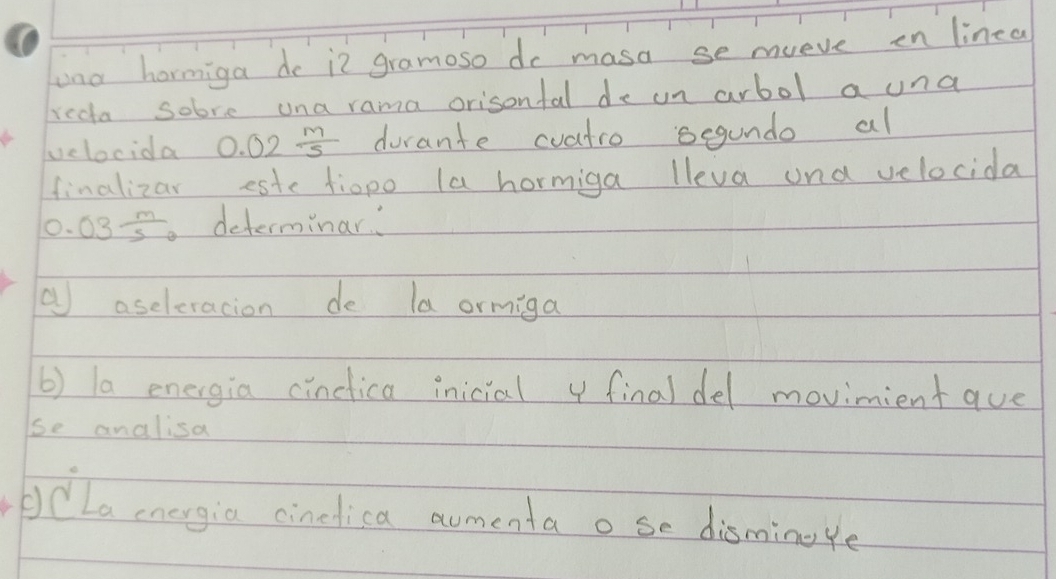 una hormiga de 12 gramoso de masa se mueve en linea
recta sobre una rama orisontal de un arbol a una
velocida 0.02 m/s durante cuatro segundo al
finalizar este tiopo la hormiga lleva una velocida
0.03 m/s. determinar:
a) aseleracion de la ormiga
b) la energia cinetica inicial y final del movimient que
se analisa
c) ¿La energia cinetica aumenta o se disminuye